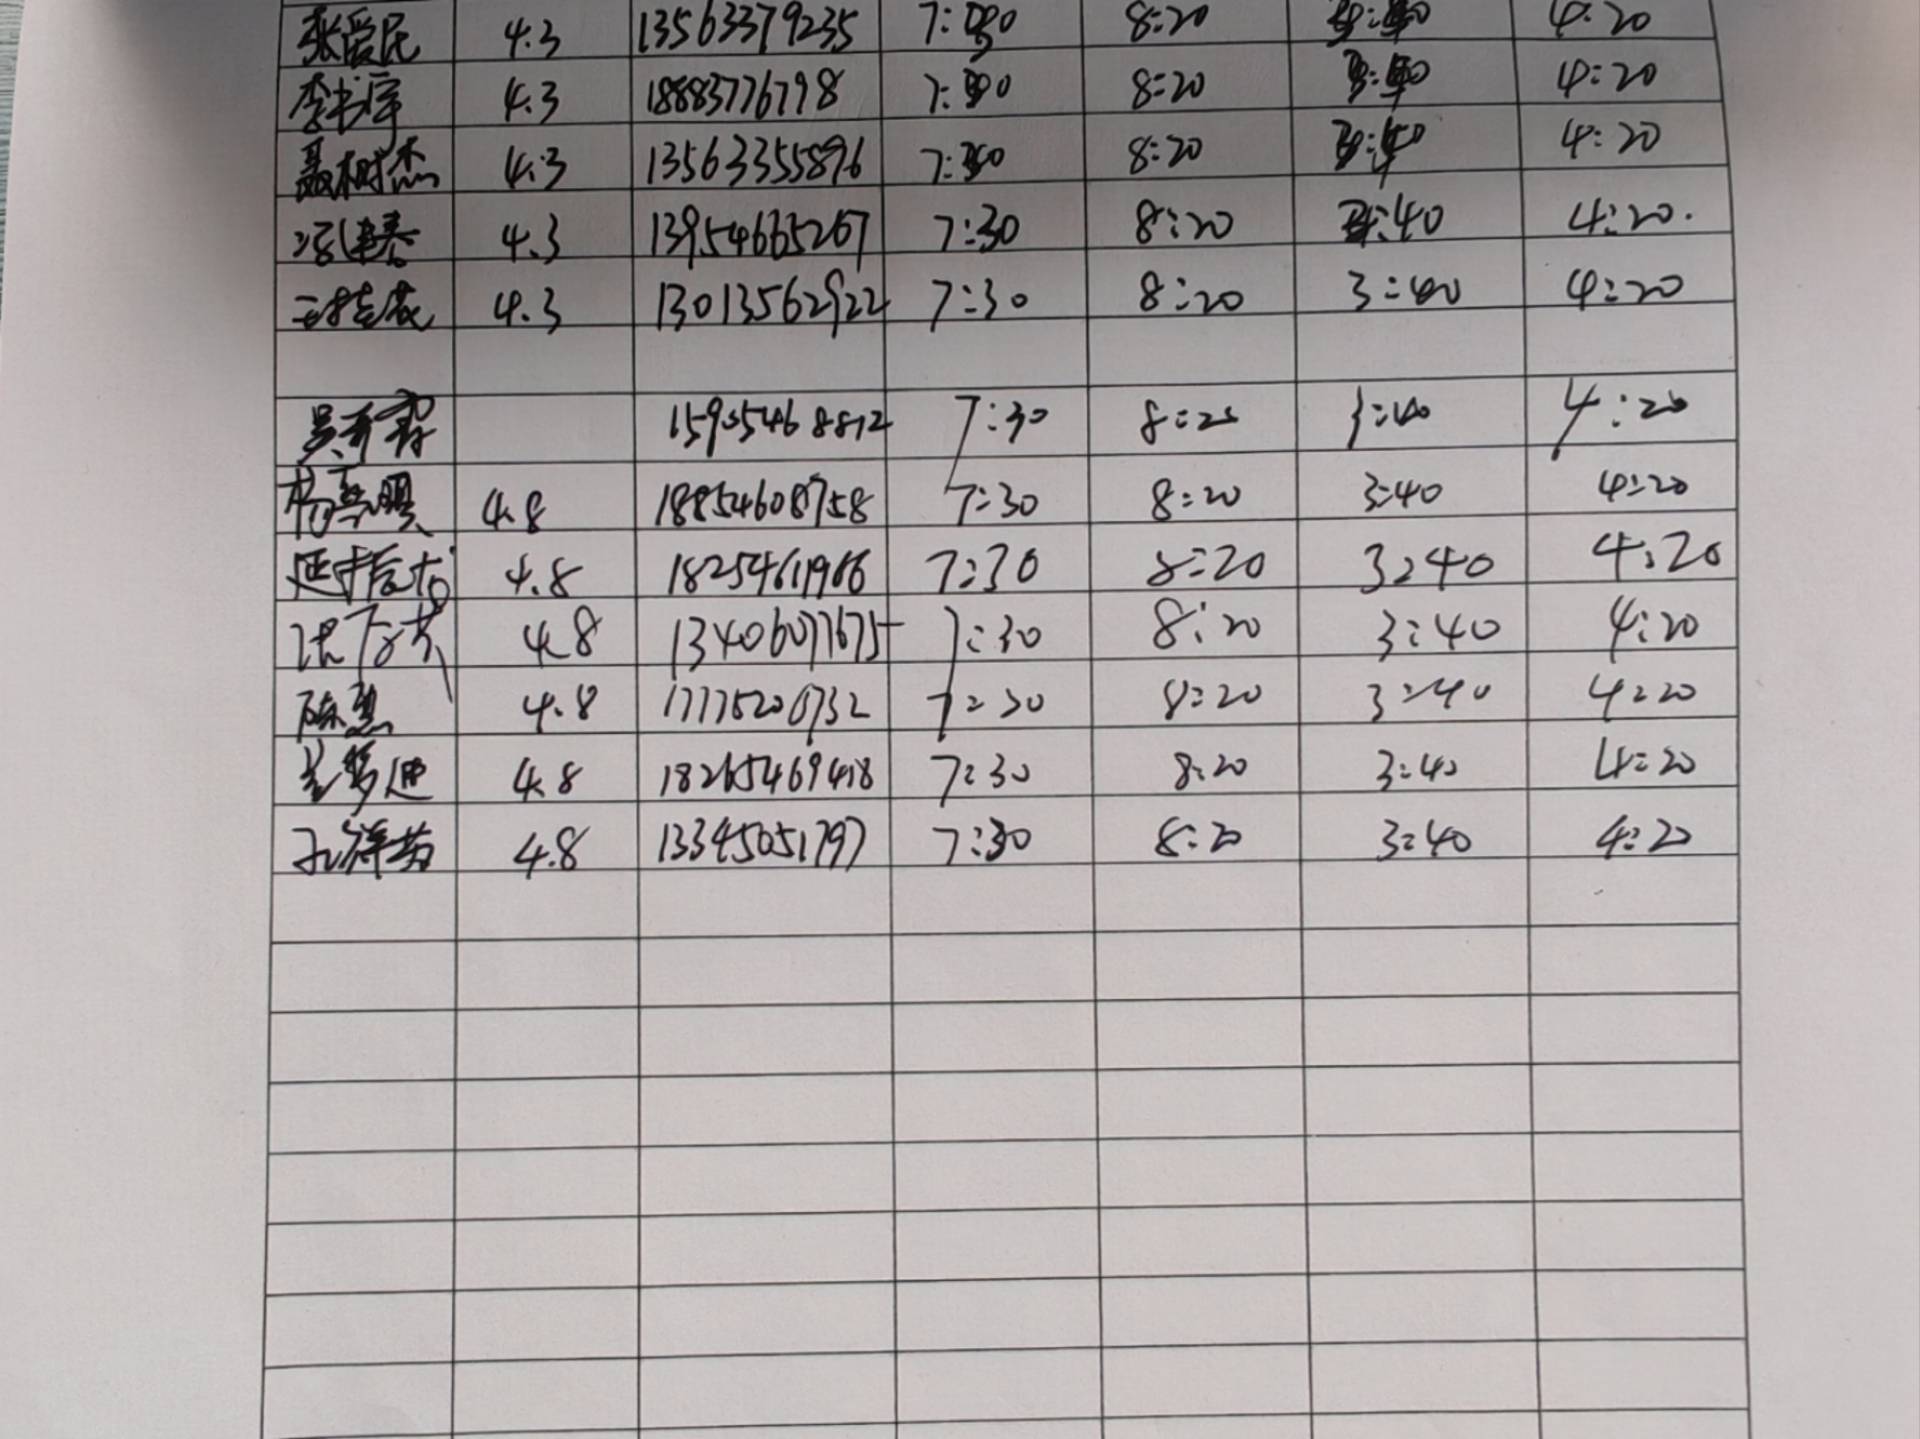 张爱民 4.3 13563379235 7:30 8:20 3:40 4:20
李书宇 4.3 18883776798 7:30 8:20 3:40 4:20
聂树杰 4.3 13563355896 7:30 8:20 3:40 4:20
4.3 13954665267 7:30 8:20 3:40 4:20.
4.3 13013562922 7:30 8:20 3:40 4:20
15905468812 7:30 8:20 3:40 4:20
4.8 18854608758 7:30 8:20 3:40 4:20
4.8 18254611966 7:30 8:20 3:40 4:20
4.8 13406077675 7:30 8:20 3:40 4:20
陈慧 4.8 7:30 8:20 3:40 4:20
4.8 18265469418 7:30 8:20 3:40 4:20
孔祥芬 4.8 13345051797 7:30 8:20 3:40 4:20